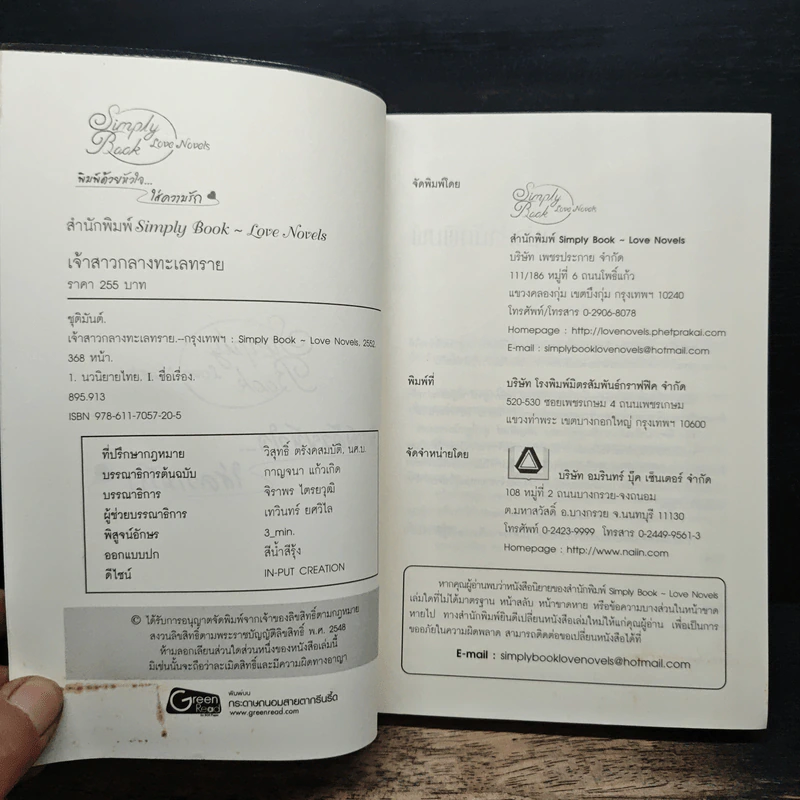 Simply
Book Love Novels
พิมพ์ด้วยหัวใจ...
ใส่ความรัก
สำนักพิมพ์ Simply Book ~ Love Novels
เจ้าสาวกลางทะเลทราย
ราคา 255 บาท
ชุติมันต์.
เจ้าสาวกลางทะเลทราย.--กรุงเทพฯ : Simply Book ~ Love Novels, 2552.
368 หน้า.
1. นวนิยายไทย. I. ชื่อเรื่อง.
895.913
ISBN 978-611-7057-20-5
ที่ปรึกษากฎหมาย วิสุทธิ์ ตรังคสมบัติ, นศ.บ.
บรรณาธิการต้นฉบับ กาญจนา แก้วเกิด
บรรณาธิการ จิราพร ไตรยวุฒิ
ผู้ช่วยบรรณาธิการ เทวินทร์ ยศวิไล
พิสูจน์อักษร 3_min.
ออกแบบปก สีน้ำสีรุ้ง
ดีไซน์ IN-PUT CREATION
© ได้รับการอนุญาตจัดพิมพ์จากเจ้าของลิขสิทธิ์ตามกฎหมาย
สงวนลิขสิทธิ์ตามพระราชบัญญัติลิขสิทธิ์ พ.ศ. 2548
ห้ามลอกเลียนส่วนใดส่วนหนึ่งของหนังสือเล่มนี้
มิเช่นนั้นจะถือว่าละเมิดสิทธิ์และมีความผิดทางอาญา
Green
Read
พิมพ์บน
กระดาษถนอมสายตากรีนรี้ด
www.greenread.com
จัดพิมพ์โดย
Simply
Book Love Novels
สำนักพิมพ์ Simply Book ~ Love Novels
บริษัท เพชรประกาย จำกัด
111/186 หมู่ที่ 6 ถนนโพธิ์แก้ว
แขวงคลองกุ่ม เขตบึงกุ่ม กรุงเทพฯ 10240
โทรศัพท์/โทรสาร 0-2906-8078
Homepage : http://lovenovels.phetprakai.com
E-mail : simplybooklovenovels@hotmail.com
พิมพ์ที่ บริษัท โรงพิมพ์มิตรสัมพันธ์กราฟฟิค จำกัด
520-530 ซอยเพชรเกษม 4 ถนนเพชรเกษม
แขวงท่าพระ เขตบางกอกใหญ่ กรุงเทพฯ 10600
จัดจำหน่ายโดย
บริษัท อมรินทร์ บุ๊ค เซ็นเตอร์ จำกัด
108 หมู่ที่ 2 ถนนบางกรวย-จงถนอม
ต.มหาสวัสดิ์ อ.บางกรวย จ.นนทบุรี 11130
โทรศัพท์ 0-2423-9999 โทรสาร 0-2449-9561-3
Homepage : http://www.naiin.com
หากคุณผู้อ่านพบว่าหนังสือนิยายของสำนักพิมพ์ Simply Book ~ Love Novels
เล่มใดที่ไม่ได้มาตรฐาน หน้าสลับ หน้าขาดหาย หรือข้อความบางส่วนในหน้าขาด
หายไป ทางสำนักพิมพ์ยินดีเปลี่ยนหนังสือเล่มใหม่ให้แก่คุณผู้อ่าน เพื่อเป็นการ
ขออภัยในความผิดพลาด สามารถติดต่อขอเปลี่ยนหนังสือได้ที่
E-mail : simplybooklovenovels@hotmail.com